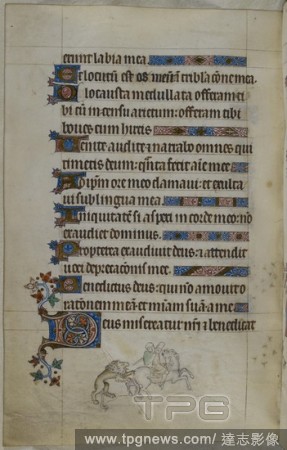 erunt labia mea.
Et locutū est os meū in tribulacōne mea
Holocausta medullata offeram ti
bi cū incensu arietum: offeram tibi
boues cum hircis
Uenite audite et narrabo omnes qui
timetis deum: qᵃnta fecit aīe mee
Ad ip̄m ore meo clamaui: et exalta
ui sub lingua mea.
Iniquitatē si aspexi in corde meo: nō
exaudiet dominus.
Propterea exaudiuit deus: et attendit
uoci dep̄cacōnis mee.
Benedictus deus: qui nō amouit o
rationem meā et mīam suā: a me
Deus misereatur nr̄i et benedicat
TPG
www.tpgnews.com / 達志影像